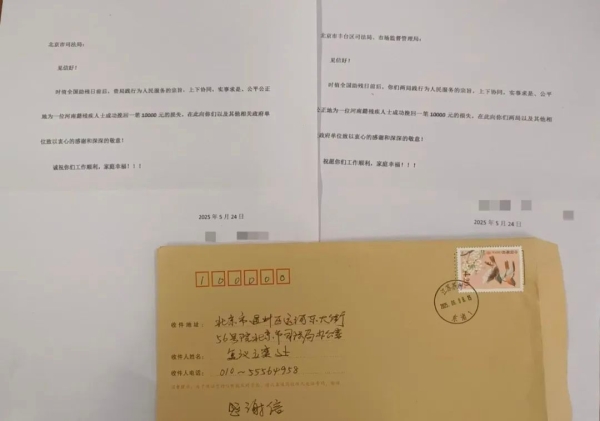 北京市司法局:
见信好!
时值全国助残日前后,贵局践行为人民服务的宗旨,上下协同,实事求是、公平公正
地为一位河南籍残疾人士成功挽回一笔 10000 元的损失,在此向你们以及其他相关政府单
位致以衷心的感谢和深深的敬意!
诚祝你们工作顺利,家庭幸福!!!
2025 年 5 月 24 日
北京市丰台区司法局、市场监督管理局:
见信好!
时值全国助残日前后,你们两局践行为人民服务的宗旨,上下协同,实事求是、公平公
正地为一位河南籍残疾人士成功挽回一笔 10000 元的损失,在此向你们两局以及其他相关
政府单位致以衷心的感谢和深深的敬意!
祝愿你们工作顺利,家庭幸福!!!
2025 年 5 月 24 日
100000
收件地址:北京市通州区运河东大街
56号院北京市司法局办公室
收件人姓名:
收件人电话:010-55564958
感谢信